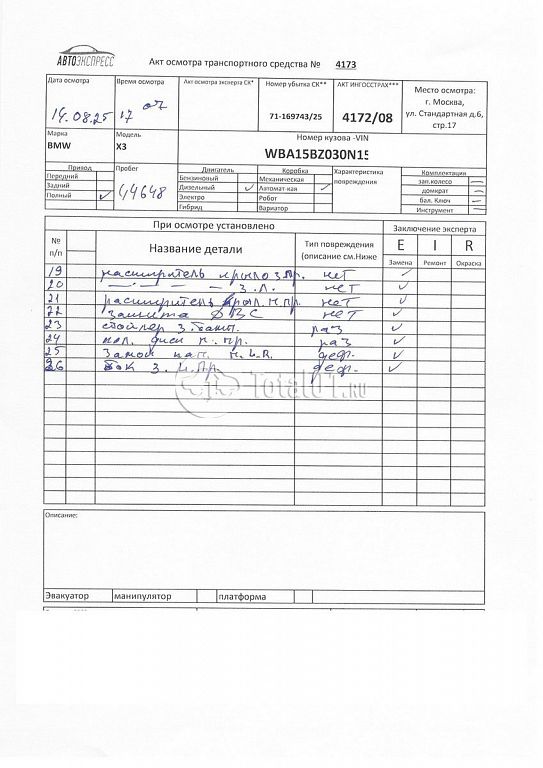 АВТОЭКСПРЕСС
Акт осмотра транспортного средства № 4173
Дата осмотра
14.08.25
Время осмотра
17 07
Акт осмотра эксперта СК*
Номер убытка СК**
71-169743/25
АКТ ИНГОССТРАХ***
4172/08
Место осмотра:
г. Москва,
ул. Стандартная д.6,
стр.17
Марка
BMW
Модель
X3
Номер кузова -VIN
WBA15BZ030N15
Привод
Передний
Задний
Полный ✓
Пробег
44648
Двигатель
Бензиновый
Дизельный ✓
Электро
Гибрид
Коробка
Механическая
Автомат-кая ✓
Робот
Вариатор
Характеристика
повреждений
Комплектация
зап.колесо —
домкрат —
бал. Ключ —
Инструмент —
№
п/п
При осмотре установлено
Название детали
Тип повреждения
(описание см.Ниже
Заключение эксперта
E I R
Замена Ремонт Окраска
19 расширитель крыло з.пр. нет ✓
20 — — — з.л. нет ✓
21 расширитель крыл. п.пр. нет ✓
22 защита ДВС нет ✓
23 з. раз ✓
24 п. пр. раз ✓
25 Замок деф. ✓
26 Бок з. деф. ✓
Total01.RU
Описание:
Эвакуатор манипулятор платформа